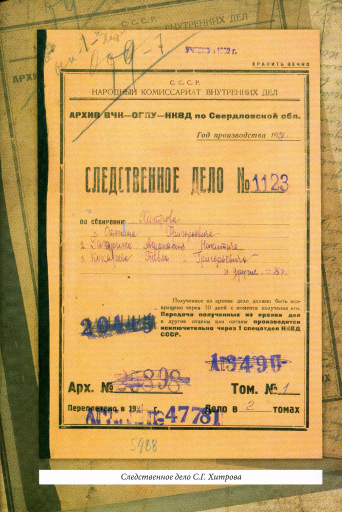 099-7
УЧТЕНО в 1952 г.
ХРАНИТЬ ВЕЧНО
С.С.С.Р.
НАРОДНЫЙ КОМИССАРИАТ ВНУТРЕННИХ ДЕЛ
АРХИВ ВЧК—ОГПУ—НКВД по Свердловской обл.
Год производства 19
СЛЕДСТВЕННОЕ ДЕЛО № 1123
по обвинению Хитрова
Степана Григорьевича
2. Никитича
3. Павла Григорьевича
и другие — 8 ч.
Полученное из архива дело должно быть воз-
вращено через 10 дней с момента получения его.
Передача полученных из архива дел
в другие отделы или органы производится
исключительно через 1 спецотдел НКВД
СССР.
20415
13490
Арх. № 8898 Том. № 1
Переплетено, в 19 Дело в 2 томах
№ 47781
5988
Следственное дело С.Г. Хитрова